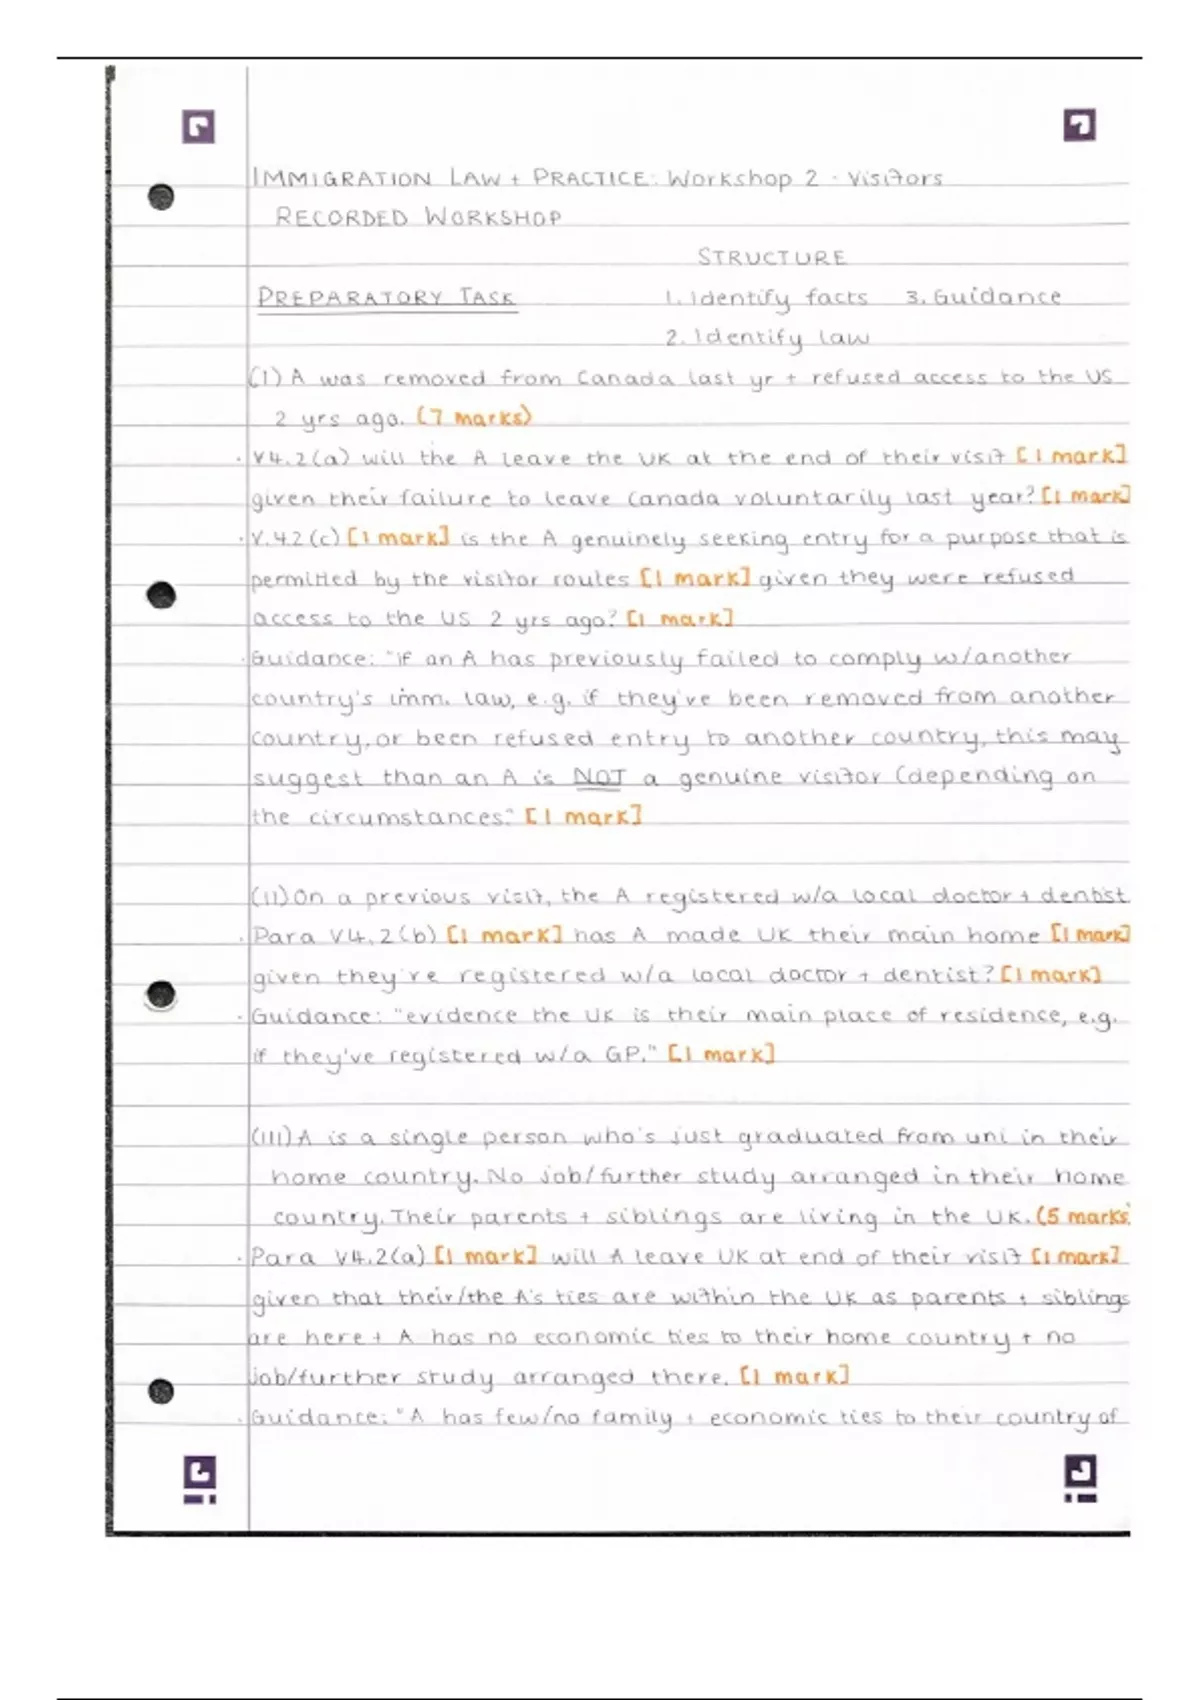 IMMIGRATION LAW + PRACTICE: Workshop 2 - Visitors
RECORDED WORKSHOP
STRUCTURE
PREPARATORY TASK 1. Identify facts 3. Guidance
2. Identify law
(I) A was removed from Canada last yr + refused access to the US
2 yrs ago. (7 marks)
· V4.2(a) will the A leave the UK at the end of their visit [1 mark]
given their failure to leave Canada voluntarily last year? [1 mark]
· V.4.2(c) [1 mark] is the A genuinely seeking entry for a purpose that is
permitted by the visitor routes [1 mark] given they were refused
access to the US 2 yrs ago? [1 mark]
· Guidance: "if an A has previously failed to comply w/another
country's imm. law, e.g. if they've been removed from another
country, or been refused entry to another country, this may
suggest than an A is NOT a genuine visitor (depending on
the circumstances." [1 mark]
(II) On a previous visit, the A registered w/a local doctor + dentist
· Para V4.2(b) [1 mark] has A made UK their main home [1 mark]
given they're registered w/a local doctor + dentist? [1 mark]
· Guidance: "evidence the UK is their main place of residence, e.g.
if they've registered w/a GP." [1 mark]
(III) A is a single person who's just graduated from uni in their
home country. No job/further study arranged in their home
country. Their parents + siblings are living in the UK. (5 marks)
· Para V4.2(a) [1 mark] will A leave UK at end of their visit [1 mark]
given that their/the A's ties are within the UK as parents + siblings
are here + A has no economic ties to their home country + no
job/further study arranged there. [1 mark]
· Guidance: "A has few/no family + economic ties to their country of